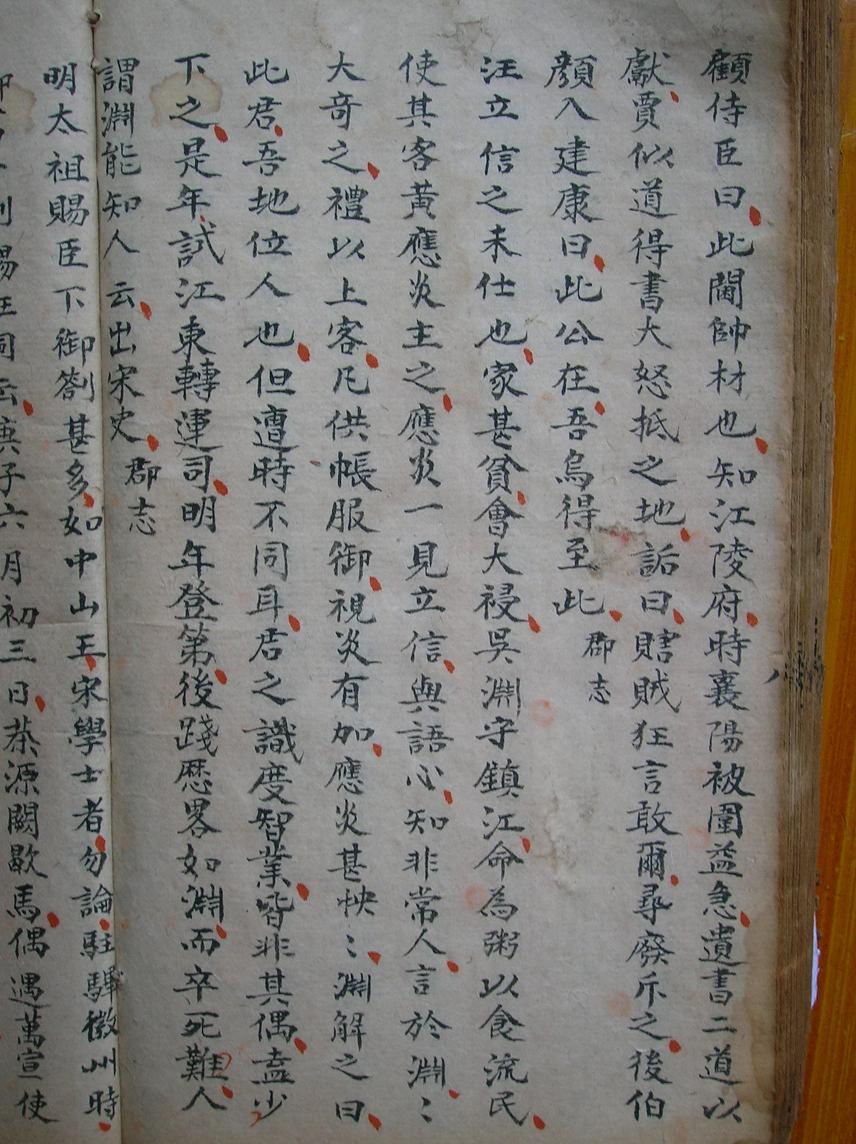 顧侍臣曰此閫帥材也知江陵府時襄陽被圍益急遺書二道以
獻賈似道得書大怒抵之地詬曰瞎賊狂言敢爾尋廢斥之後伯
顏入建康曰此公在吾烏得至此郡志
汪立信之未仕也家甚貧會大祲吳淵守鎮江命為粥以食流民
使其客黃應炎主之應炎一見立信與語心知非常人言於淵〻
大奇之禮以上客凡供帳服御視炎有加應炎甚怏〻淵解之曰
此君吾地位人也但遭時不同耳君之識度智業皆非其偶盍少
下之是年試江東轉運司明年登第後踐歷畧如淵而卒死難人
謂淵能知人云出宋史郡志
明太祖賜臣下御劄甚多如中山王宋學士者勿論駐驆徽州時
賜汪同云庚子六月初三日茶源闕歇馬偶遇萬宣使